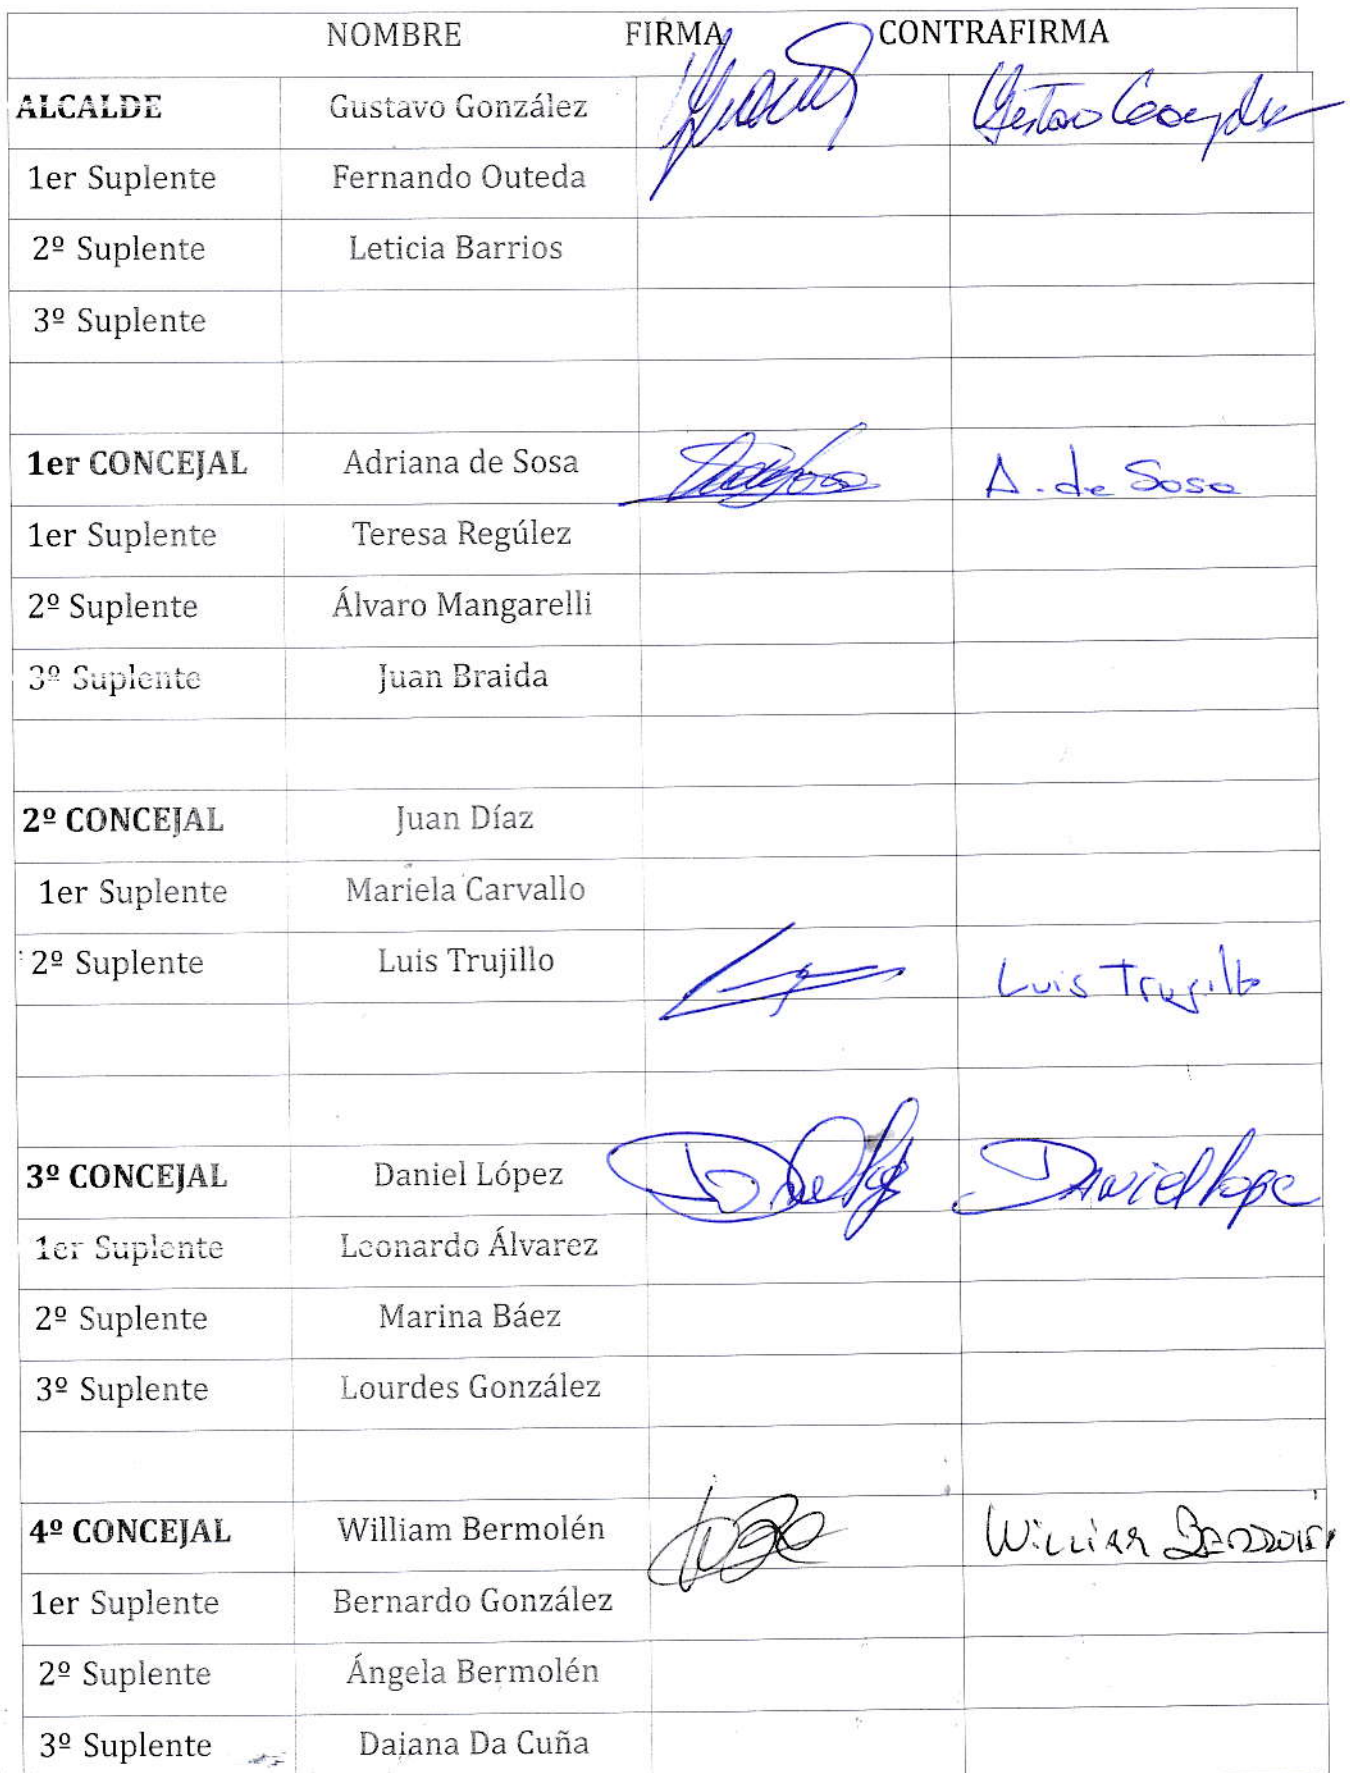 NOMBRE FIRMA CONTRAFIRMA
ALCALDE Gustavo González Gustavo Gonzalez
1er Suplente Fernando Outeda
2º Suplente Leticia Barrios
3º Suplente
1er CONCEJAL Adriana de Sosa A. de Sosa
1er Suplente Teresa Regúlez
2º Suplente Álvaro Mangarelli
3º Suplente Juan Braida
2º CONCEJAL Juan Díaz
1er Suplente Mariela Carvallo
2º Suplente Luis Trujillo Luis Trujillo
3º CONCEJAL Daniel López Daniel Lope
1er Suplente Leonardo Álvarez
2º Suplente Marina Báez
3º Suplente Lourdes González
4º CONCEJAL William Bermolén William
1er Suplente Bernardo González
2º Suplente Ángela Bermolén
3º Suplente Daiana Da Cuña